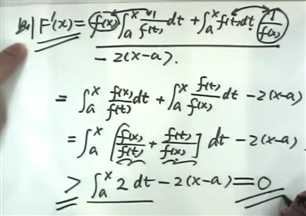 则 F'(x) = f(x)∫ₐˣ 1/f(t) dt + ∫ₐˣ f(t)dt · 1/f(x)
− 2(x−a).
= ∫ₐˣ f(x)/f(t) dt + ∫ₐˣ f(t)/f(x) dt − 2(x−a)
= ∫ₐˣ [f(x)/f(t) + f(t)/f(x)] dt − 2(x−a)
≥ ∫ₐˣ 2 dt − 2(x−a) = 0